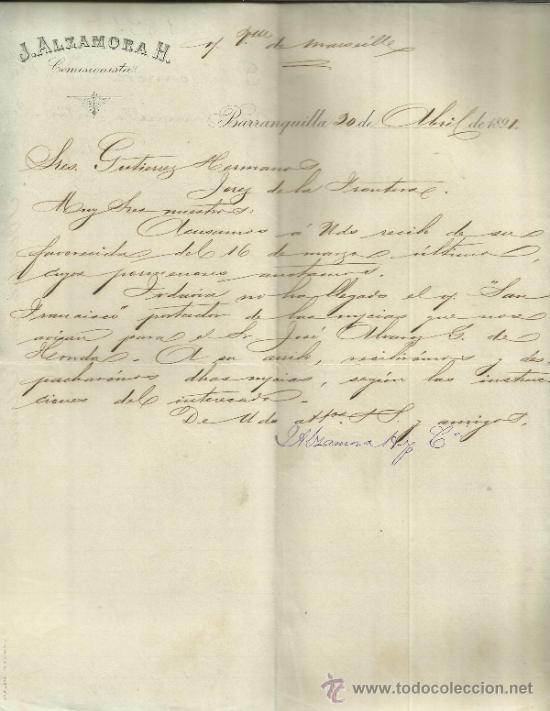 J. ALZAMORA H.
Comisionista
de Marseille
Barranquilla 20 de Abril de 1891.
Sres. Gutierrez Hermanos
Jerez de la Frontera.
Muy Sres nuestros:
Acusamos á Uds recibo de su
favorecida del 16 de marzo último,
cuyos pormenores anotamos.
Todavía no ha llegado el v. "San
Francisco" portador de las mycias que nos
avisan para el Sr. José Alvarez C. de
Honda. A su arribo, recibirémos y des-
pacharémos dhas mycias, según las instruc-
ciones del interesado.
De Uds attos S. S. y amigos.
J Alzamora H y Ca
todocoleccion
www.todocoleccion.net